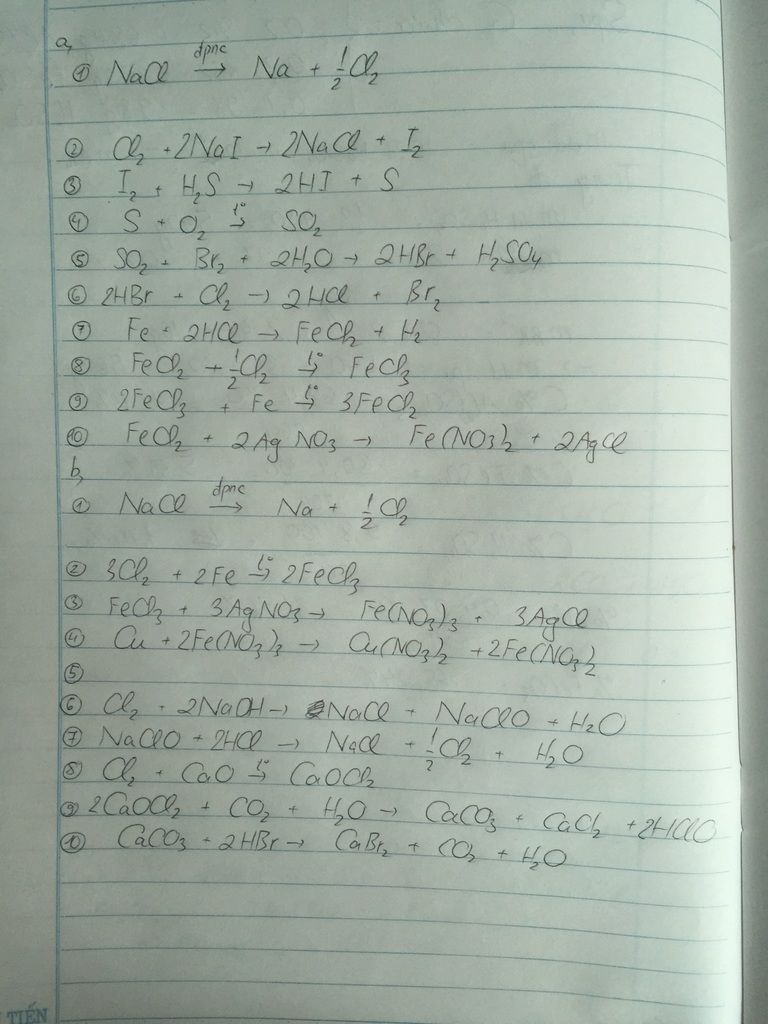 a,
① NaCl dpnc→ Na + 1/2Cl₂
② Cl₂ + 2NaI → 2NaCl + I₂
③ I₂ + H₂S → 2HI + S
④ S + O₂ t°→ SO₂
⑤ SO₂ + Br₂ + 2H₂O → 2HBr + H₂SO₄
⑥ 2HBr + Cl₂ → 2HCl + Br₂
⑦ Fe + 2HCl → FeCl₂ + H₂
⑧ FeCl₂ + 1/2Cl₂ t°→ FeCl₃
⑨ 2FeCl₃ + Fe t°→ 3FeCl₂
⑩ FeCl₂ + 2AgNO₃ → Fe(NO₃)₂ + 2AgCl
b,
① NaCl dpnc→ Na + 1/2Cl₂
② 3Cl₂ + 2Fe t°→ 2FeCl₃
③ FeCl₃ + 3AgNO₃ → Fe(NO₃)₃ + 3AgCl
④ Cu + 2Fe(NO₃)₃ → Cu(NO₃)₂ + 2Fe(NO₃)₂
⑤
⑥ Cl₂ + 2NaOH → NaCl + NaClO + H₂O
⑦ NaClO + 2HCl → NaCl + 1/2Cl₂ + H₂O
⑧ Cl₂ + CaO t°→ CaOCl₂
⑨ 2CaOCl₂ + CO₂ + H₂O → CaCO₃ + CaCl₂ + 2HClO
⑩ CaCO₃ + 2HBr → CaBr₂ + CO₂ + H₂O
TIẾN